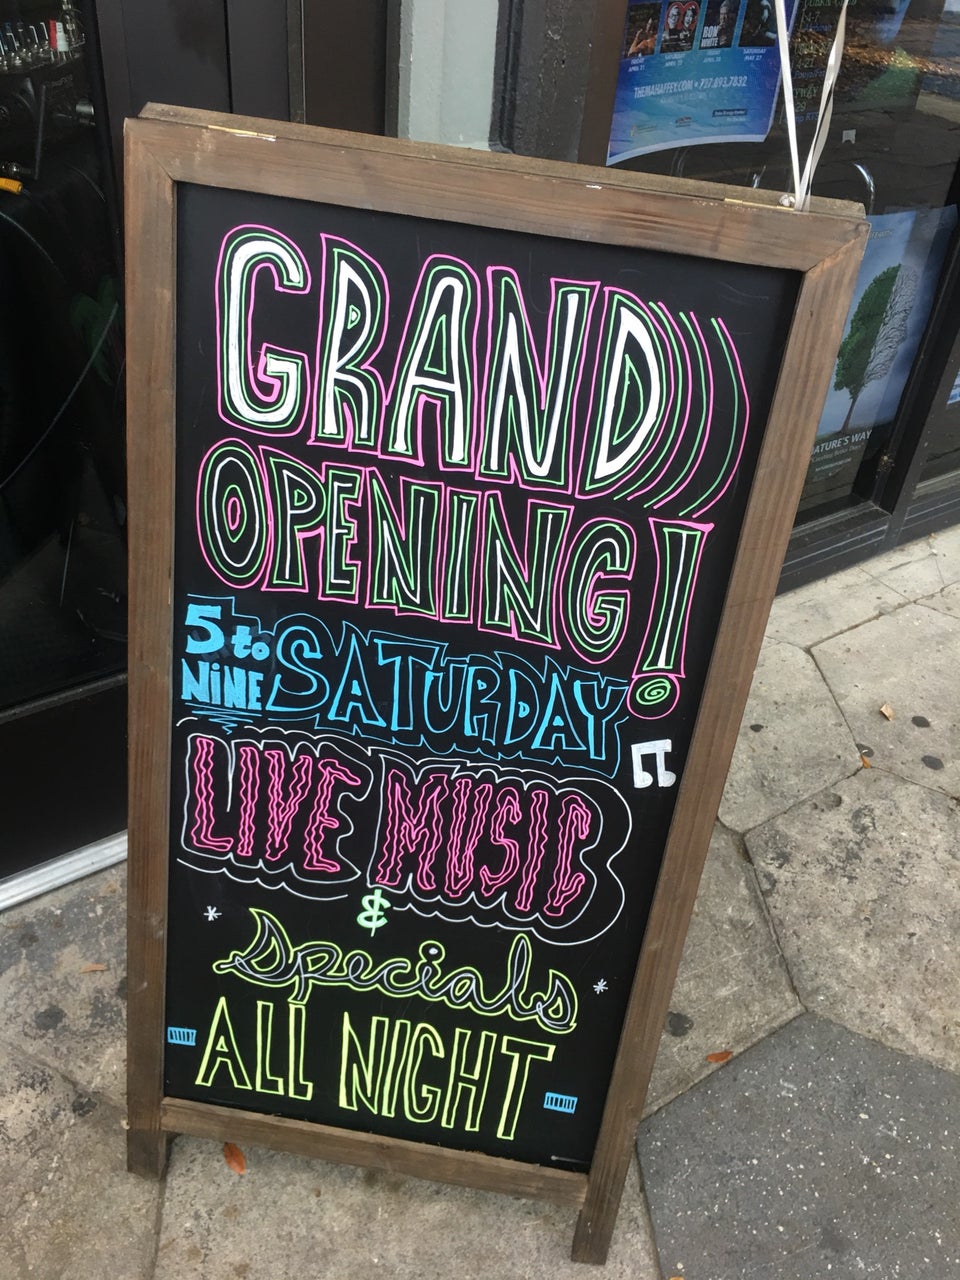 GRAND
OPENING!
5 to
NiNE
SATURDAY
LIVE MUSIC
&
Specials
ALL NIGHT
RON
WHITE
SATURDAY
THEMAHAFFEY.COM • 727.893.7832
NATURE'S WAY